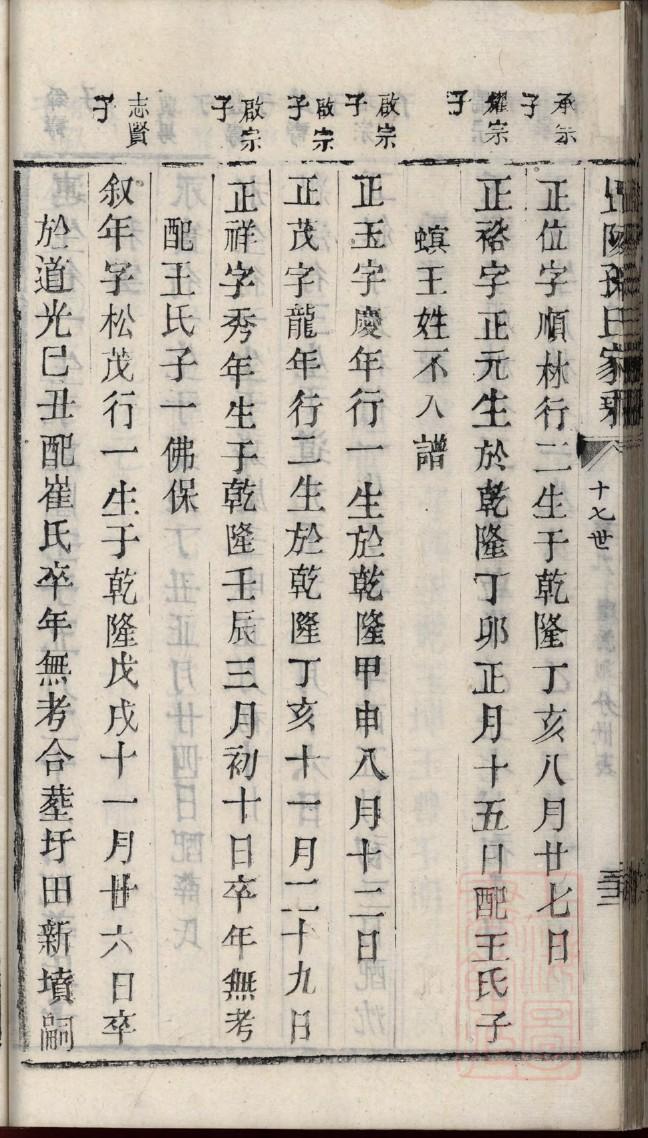 孫氏家乘
十七世
承宗子
正位字順林行二生于乾隆丁亥八月廿七日
耀宗子
正裕字正元生於乾隆丁卯正月十五日配王氏子
螟王姓不入譜
啟宗子
正玉字慶年行一生於乾隆甲申八月十二日
啟宗子
正茂字龍年行二生於乾隆丁亥十一月二十九日
啟宗子
正祥字秀年生于乾隆壬辰三月初十日卒年無考
配王氏子一佛保
志賢子
叙年字松茂行一生于乾隆戊戌十一月廿六日卒
於道光己丑配崔氏卒年無考合塟圩田新墳嗣